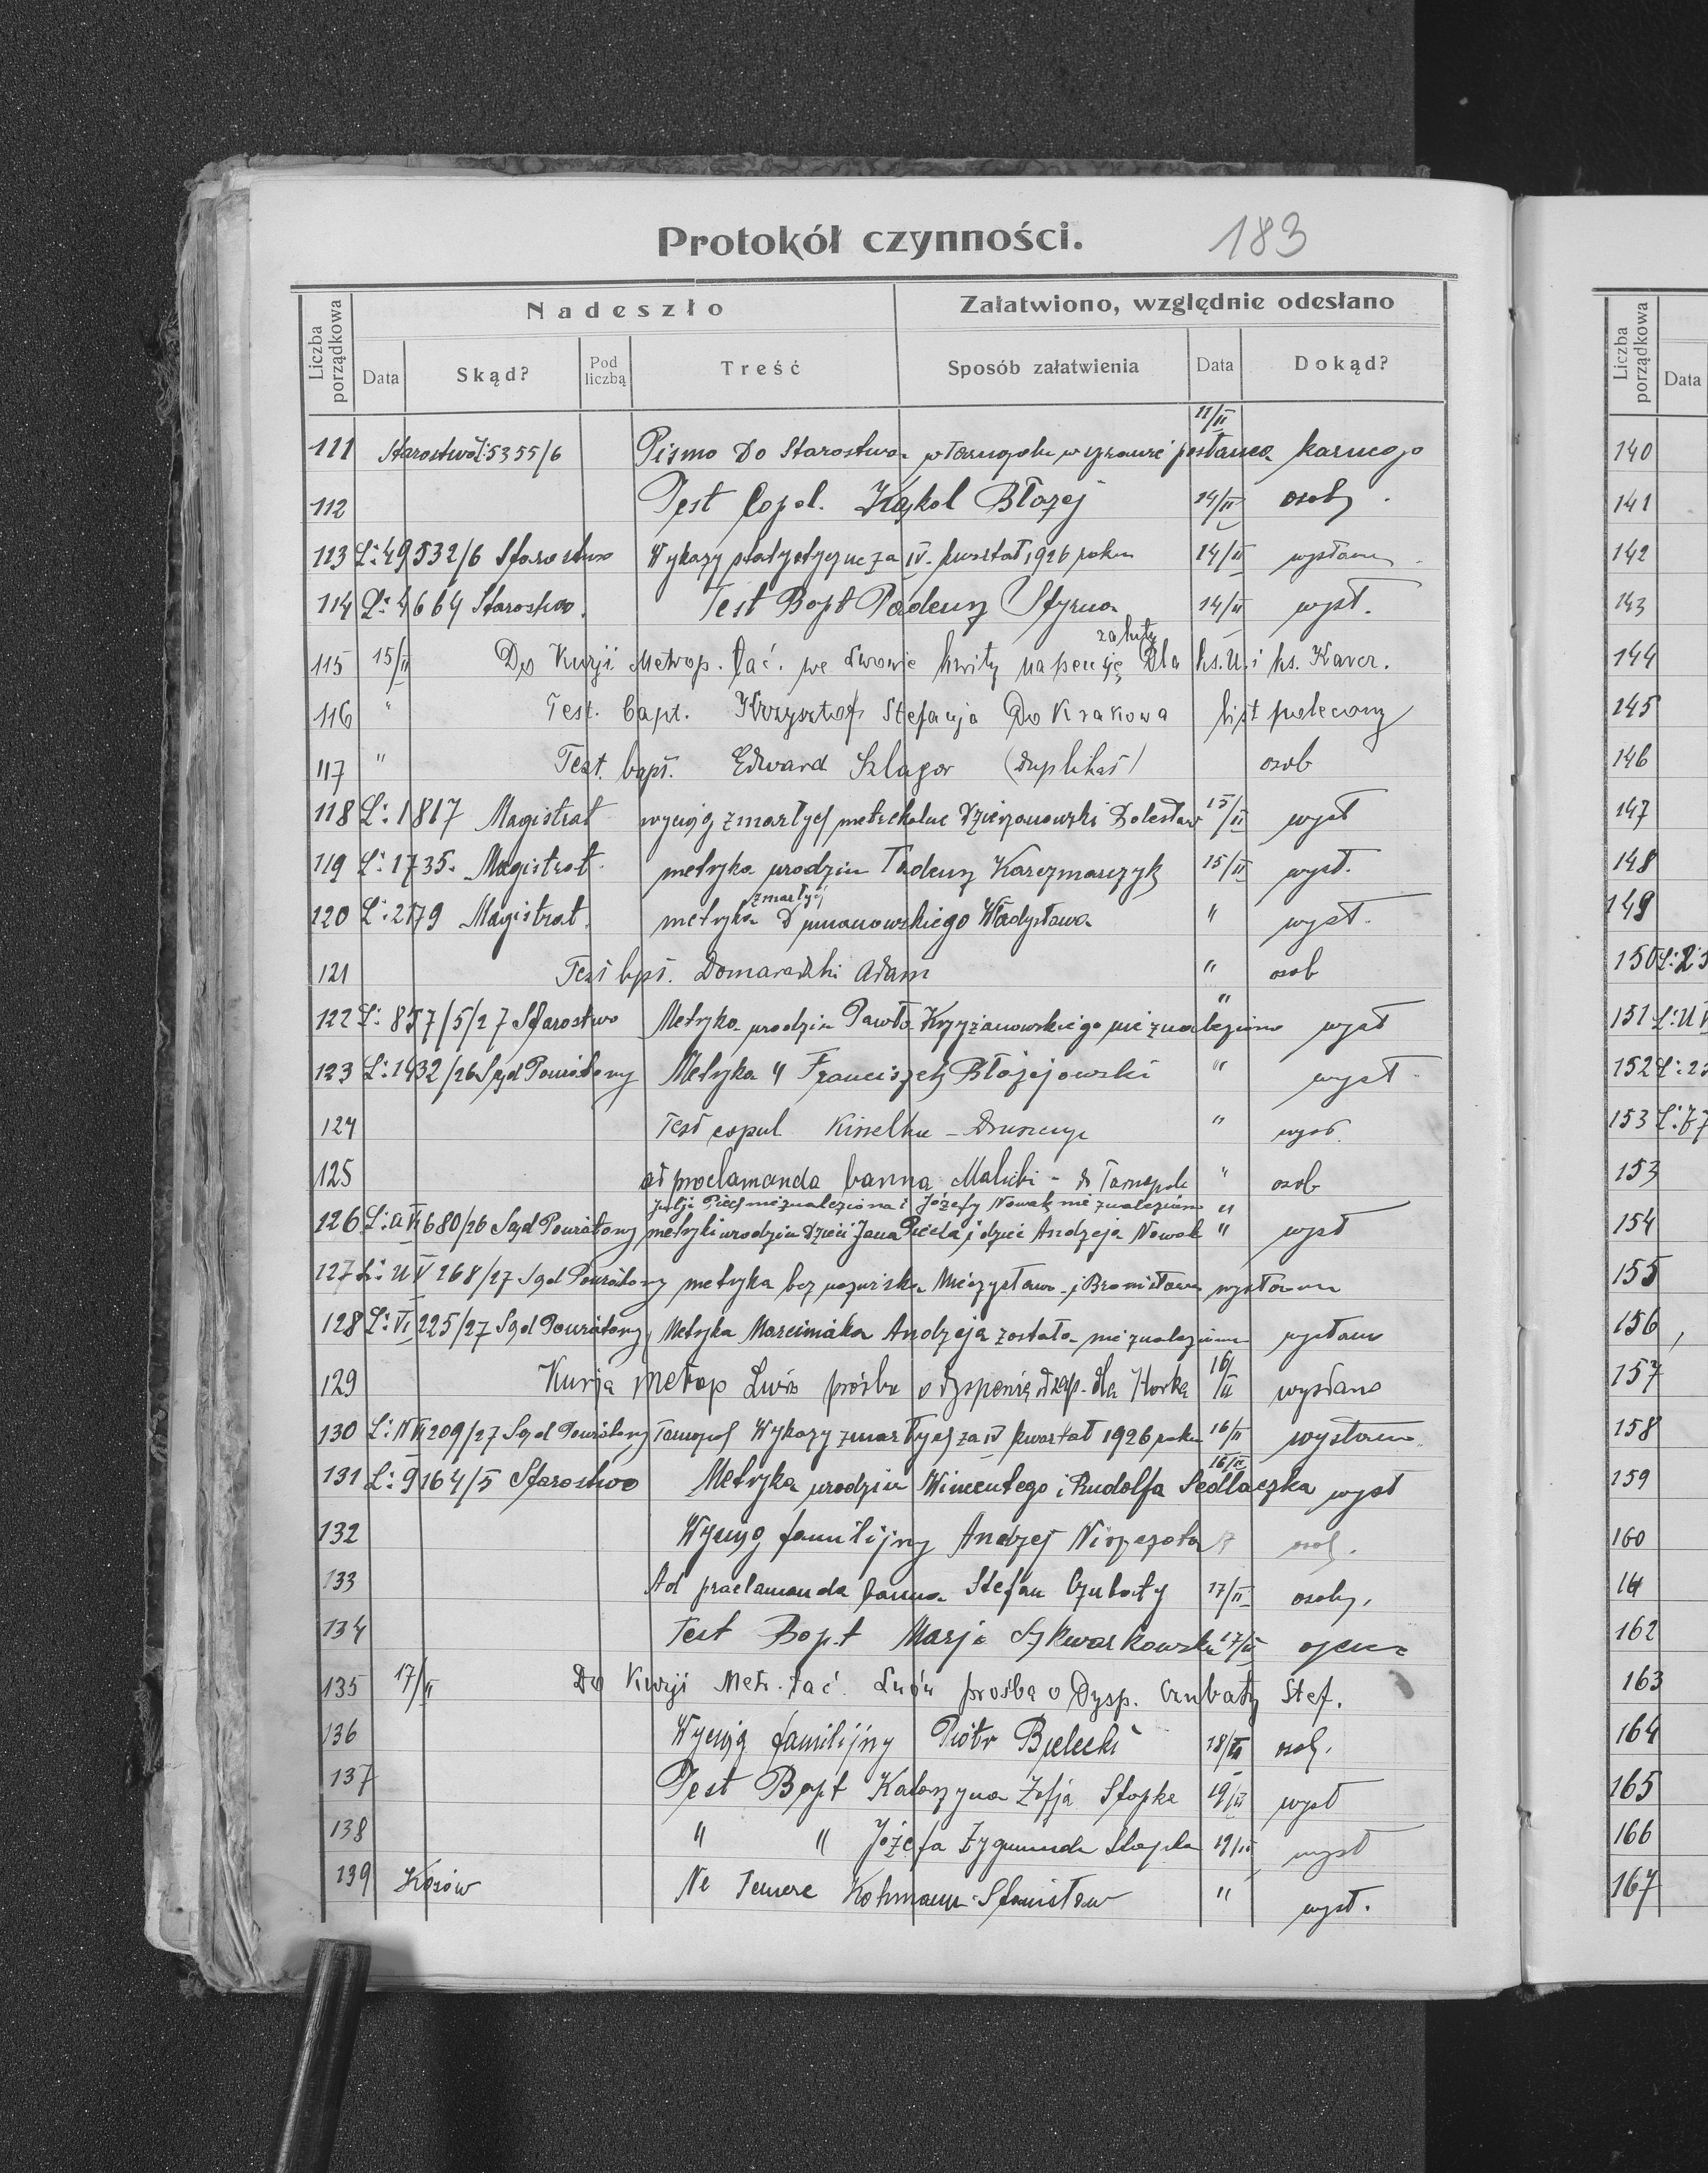 Protokół czynności. 183
Nadeszło Załatwiono, względnie odesłano
Liczba porządkowa Data Skąd? Pod liczbą Treść Sposób załatwienia Data Dokąd?
11/II
111 Starostwo L: 5355/6 Pismo Do Starostwa w Tarnopolu w sprawie karnego
112 Test Copul. Kąkol Błażej 14/II osob.
113 L: 49532/6 Starostwo Wykazy statystyczne za IV. kwartał 1926 roku 14/II wysłano
114 L: 4664 Starostwo. Test Bapt Tadeusz Styrna 14/II wysł.
za luty
115 15/II Do Kurji Metrop. łać. we Lwowie kwity na pensję Dla ks. U. i ks. Kaver.
116 " Test. bapt. Krzysztof Stefanja Do Krakowa list polecony
117 " Test. bapt. Edward Szlagor (duplikat) osob
118 L: 1817 Magistrat wyciąg zmarłych metrykalne Dzierżanowski Bolesław 15/II wysł
119 L: 1735. Magistrat metryka urodzin Tadeusz Karczmarczyk 15/II wysł.
zmarłych
120 L: 2179 Magistrat. metryka Władysława " wysł.
121 Test bpt. Domaradzki Adam " osob
"
122 L: 857/5/27 Starostwo Metryka urodzin Pawła Krzyżanowskiego nie znaleziono wysł
123 L: 1432/26 Sąd Powiatowy Metryka " Franciszek Błażejowski " wysł
124 Test copul Kisielka - "
125 ad proclamanda banna Malicki - do Tarnopola " osob
Julji Piech nie znaleziona i Józefy Nowak nie znaleziono "
126 L: a VI 680/26 Sąd Powiatowy metryki urodzin dzieci Jana Piecha i dzieci Andrzeja Nowak " wysł
127 L: U V 268/27 Sąd Powiatowy metryka bez nazwiska Mieczysława i Bronisława wysłano
128 L: VI 225/27 Sąd Powiatowy Metryka Marciniaka Andrzeja została nie znaleziono wysłano
129 Kurja Metrop Lwów prośba o dyspensię zap. dla Horka 16/II wysłano
130 L: N VI 209/27 Sąd Powiatowy Tarnopol Wykazy zmarłych za IV kwartał 1926 roku 16/II wysłano
16/II
131 L: 9164/5 Starostwo Metryka urodzin Wincentego i Rudolfa Sedlaczka wysł
132 Wyciąg familijny Andrzej Niszczota 17 osob.
133 Ad proclamanda banna Stefan Czubaty 17/II osob.
134 Test Bapt Marja Szkwarkowska 17/II
135 17/II Do Kurji Metr. łać. Lwów prośba o Dysp. Czubaty Stef.
136 Wyciąg familijny Piotr Bielecki 18/II osob.
137 Test Bapt Katarzyna Zofja Stopka 19/II wysł
138 " " Józefa Zygmunda Stopka 19/II wysł
139 Kosów Ne Temere Kohmann Stanisław " wysł.
Liczba porządkowa Data
140
141
142
143
144
145
146
147
148
149
150 L: 23
151 L: U V
152 L: 23
153 L: 77
153
154
155
156
157
158
159
160
161
162
163
164
165
166
167